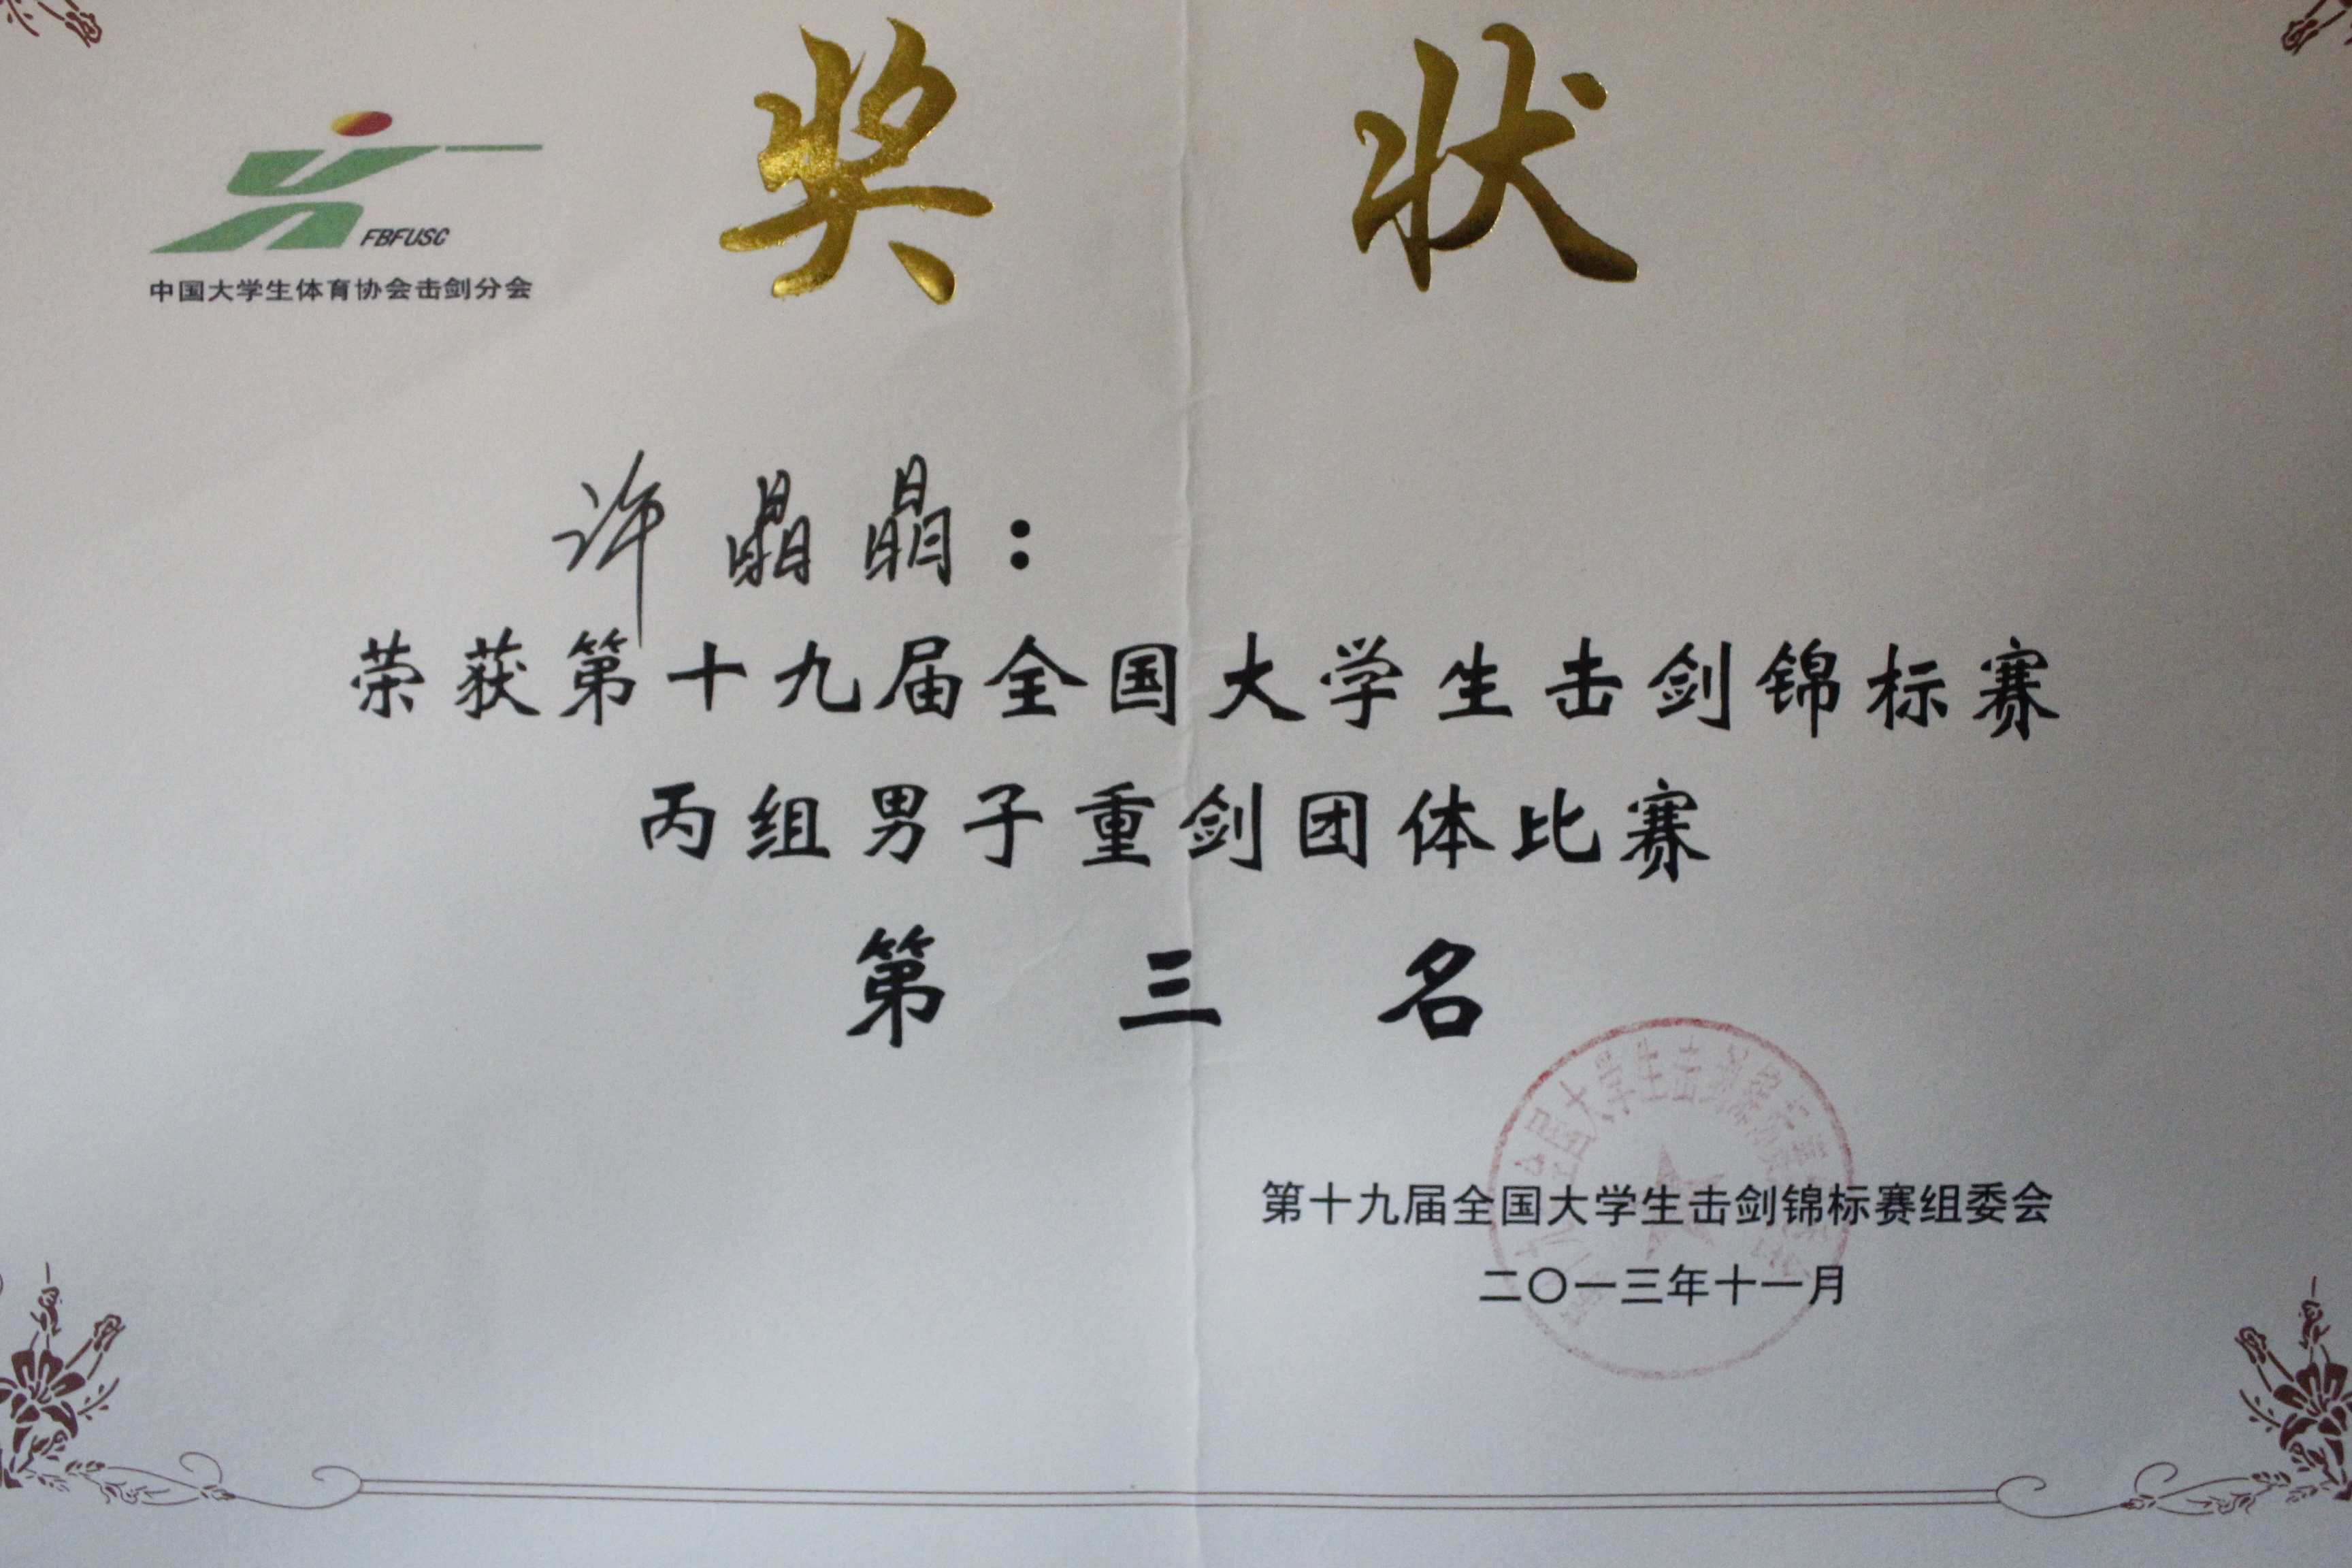 奖状
FBFUSC
中国大学生体育协会击剑分会
许晶晶：
荣获第十九届全国大学生击剑锦标赛
丙组男子重剑团体比赛
第三名
第十九届全国大学生击剑锦标赛组委会
二〇一三年十一月